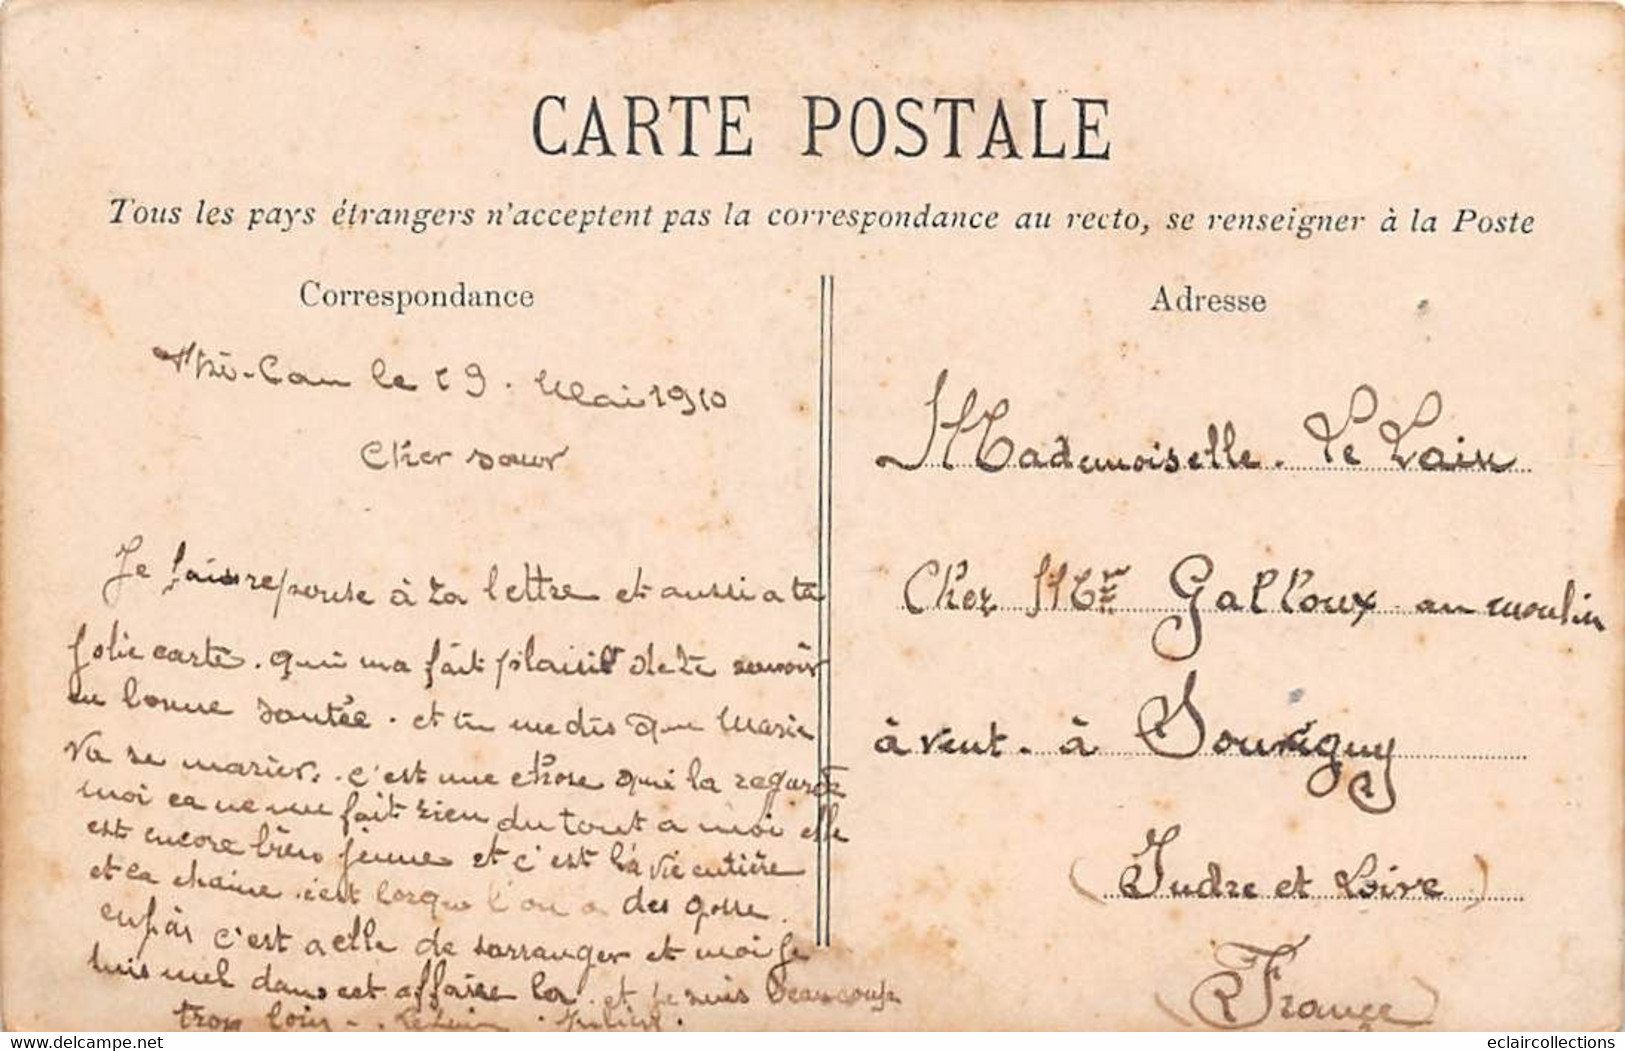 CARTE POSTALE
Tous les pays étrangers n'acceptent pas la correspondance au recto, se renseigner à la Poste
Correspondance
le 19. Mai 1910
Cher sœur
Je fais reponse à ta lettre et aussi a ta
jolie carte. qui ma fait plaisir de te savoir
en bonne santée. et tu me dis que Marie
va se marier. c'est une chose qui la regarde
moi ca ne me fait rien du tout a moi elle
est encore bien jeune et c'est la vie entière
et la chaine. cest lorsque l'on a des gosse.
enfin c'est a elle de sarranger et moi je
suis nul dans cet affaire la. et je suis beaucoup
trop loin
Adresse
Mademoiselle. Le Lain
Chez Mr Galloux au moulin
à vent. à Souvigny
(Indre et Loire)
(France)
www.delcampe.net
eclaircollections